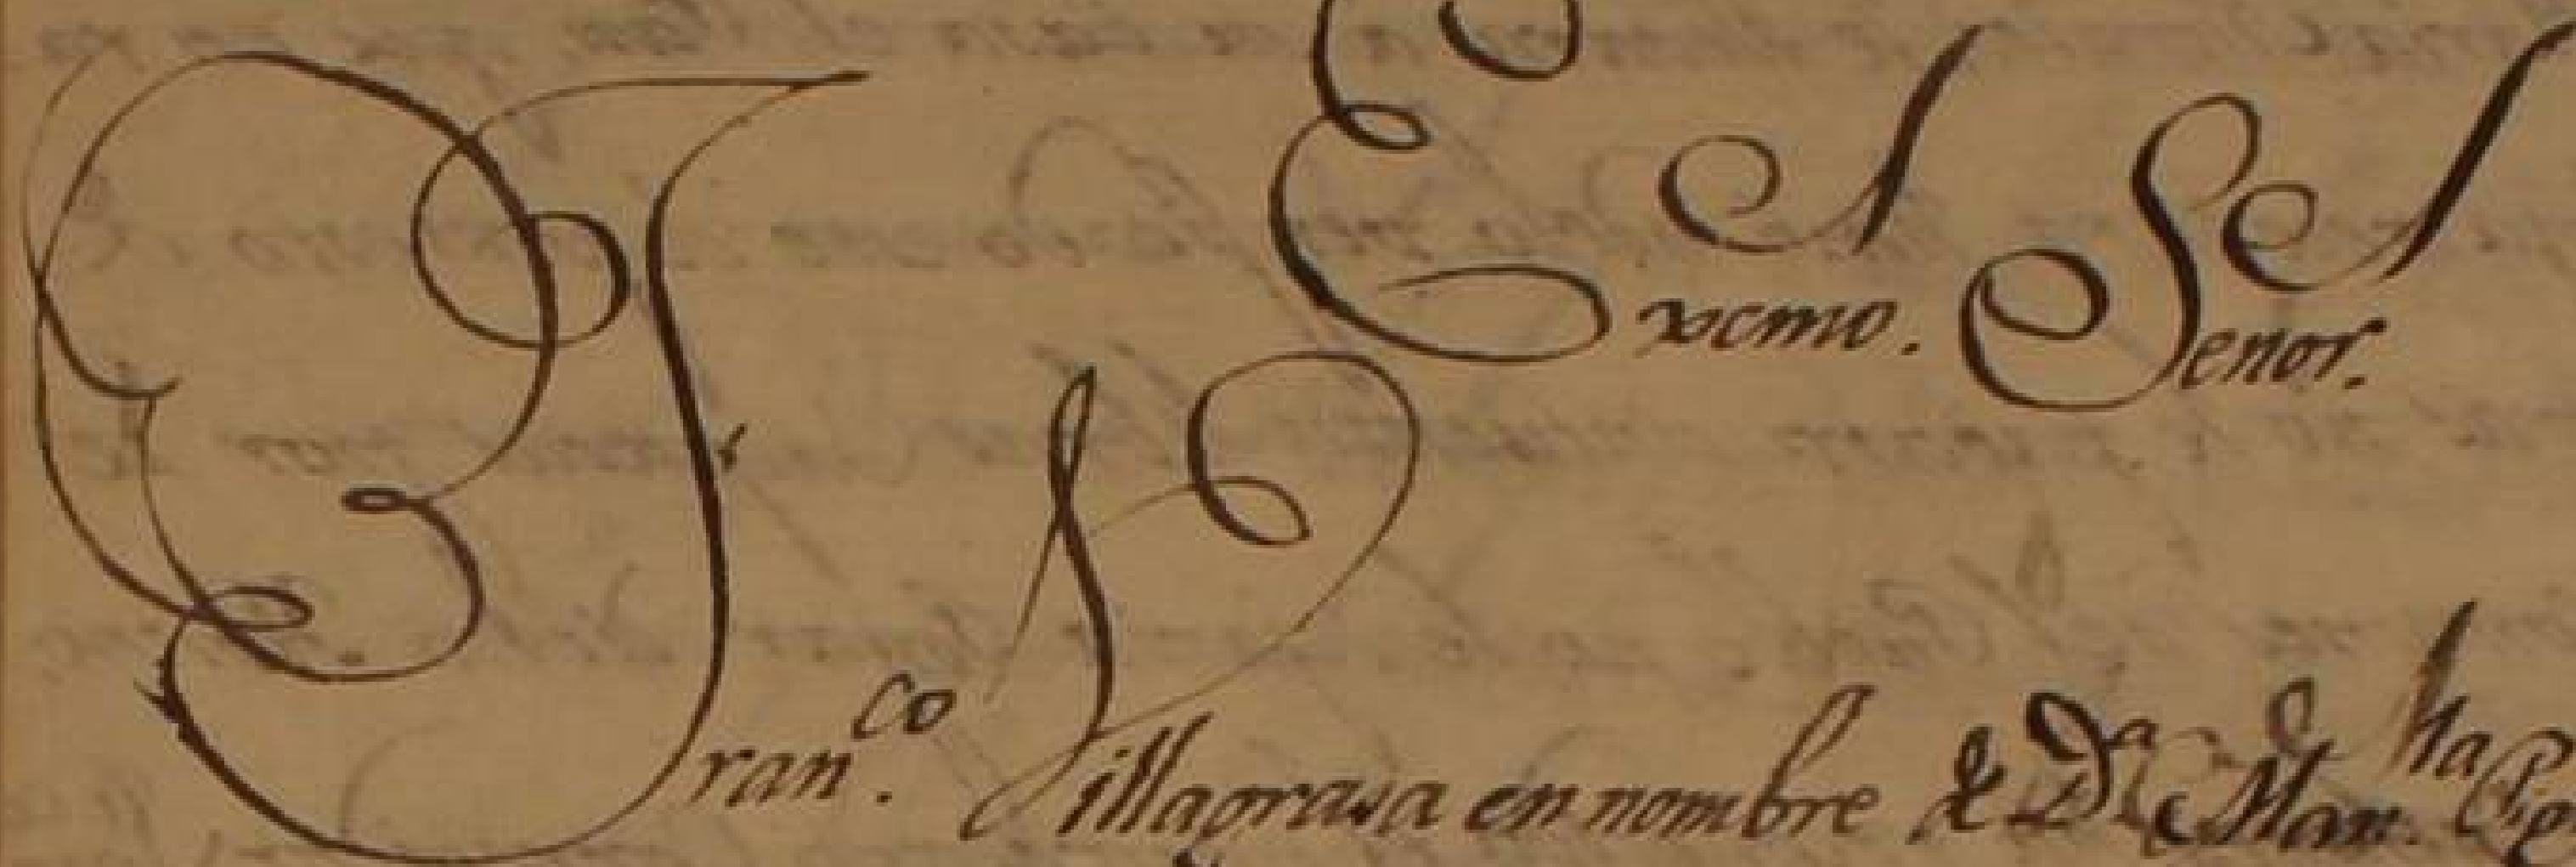 Excmo. Señor.
Fran.co Villagrasa en nombre de Da. Man.